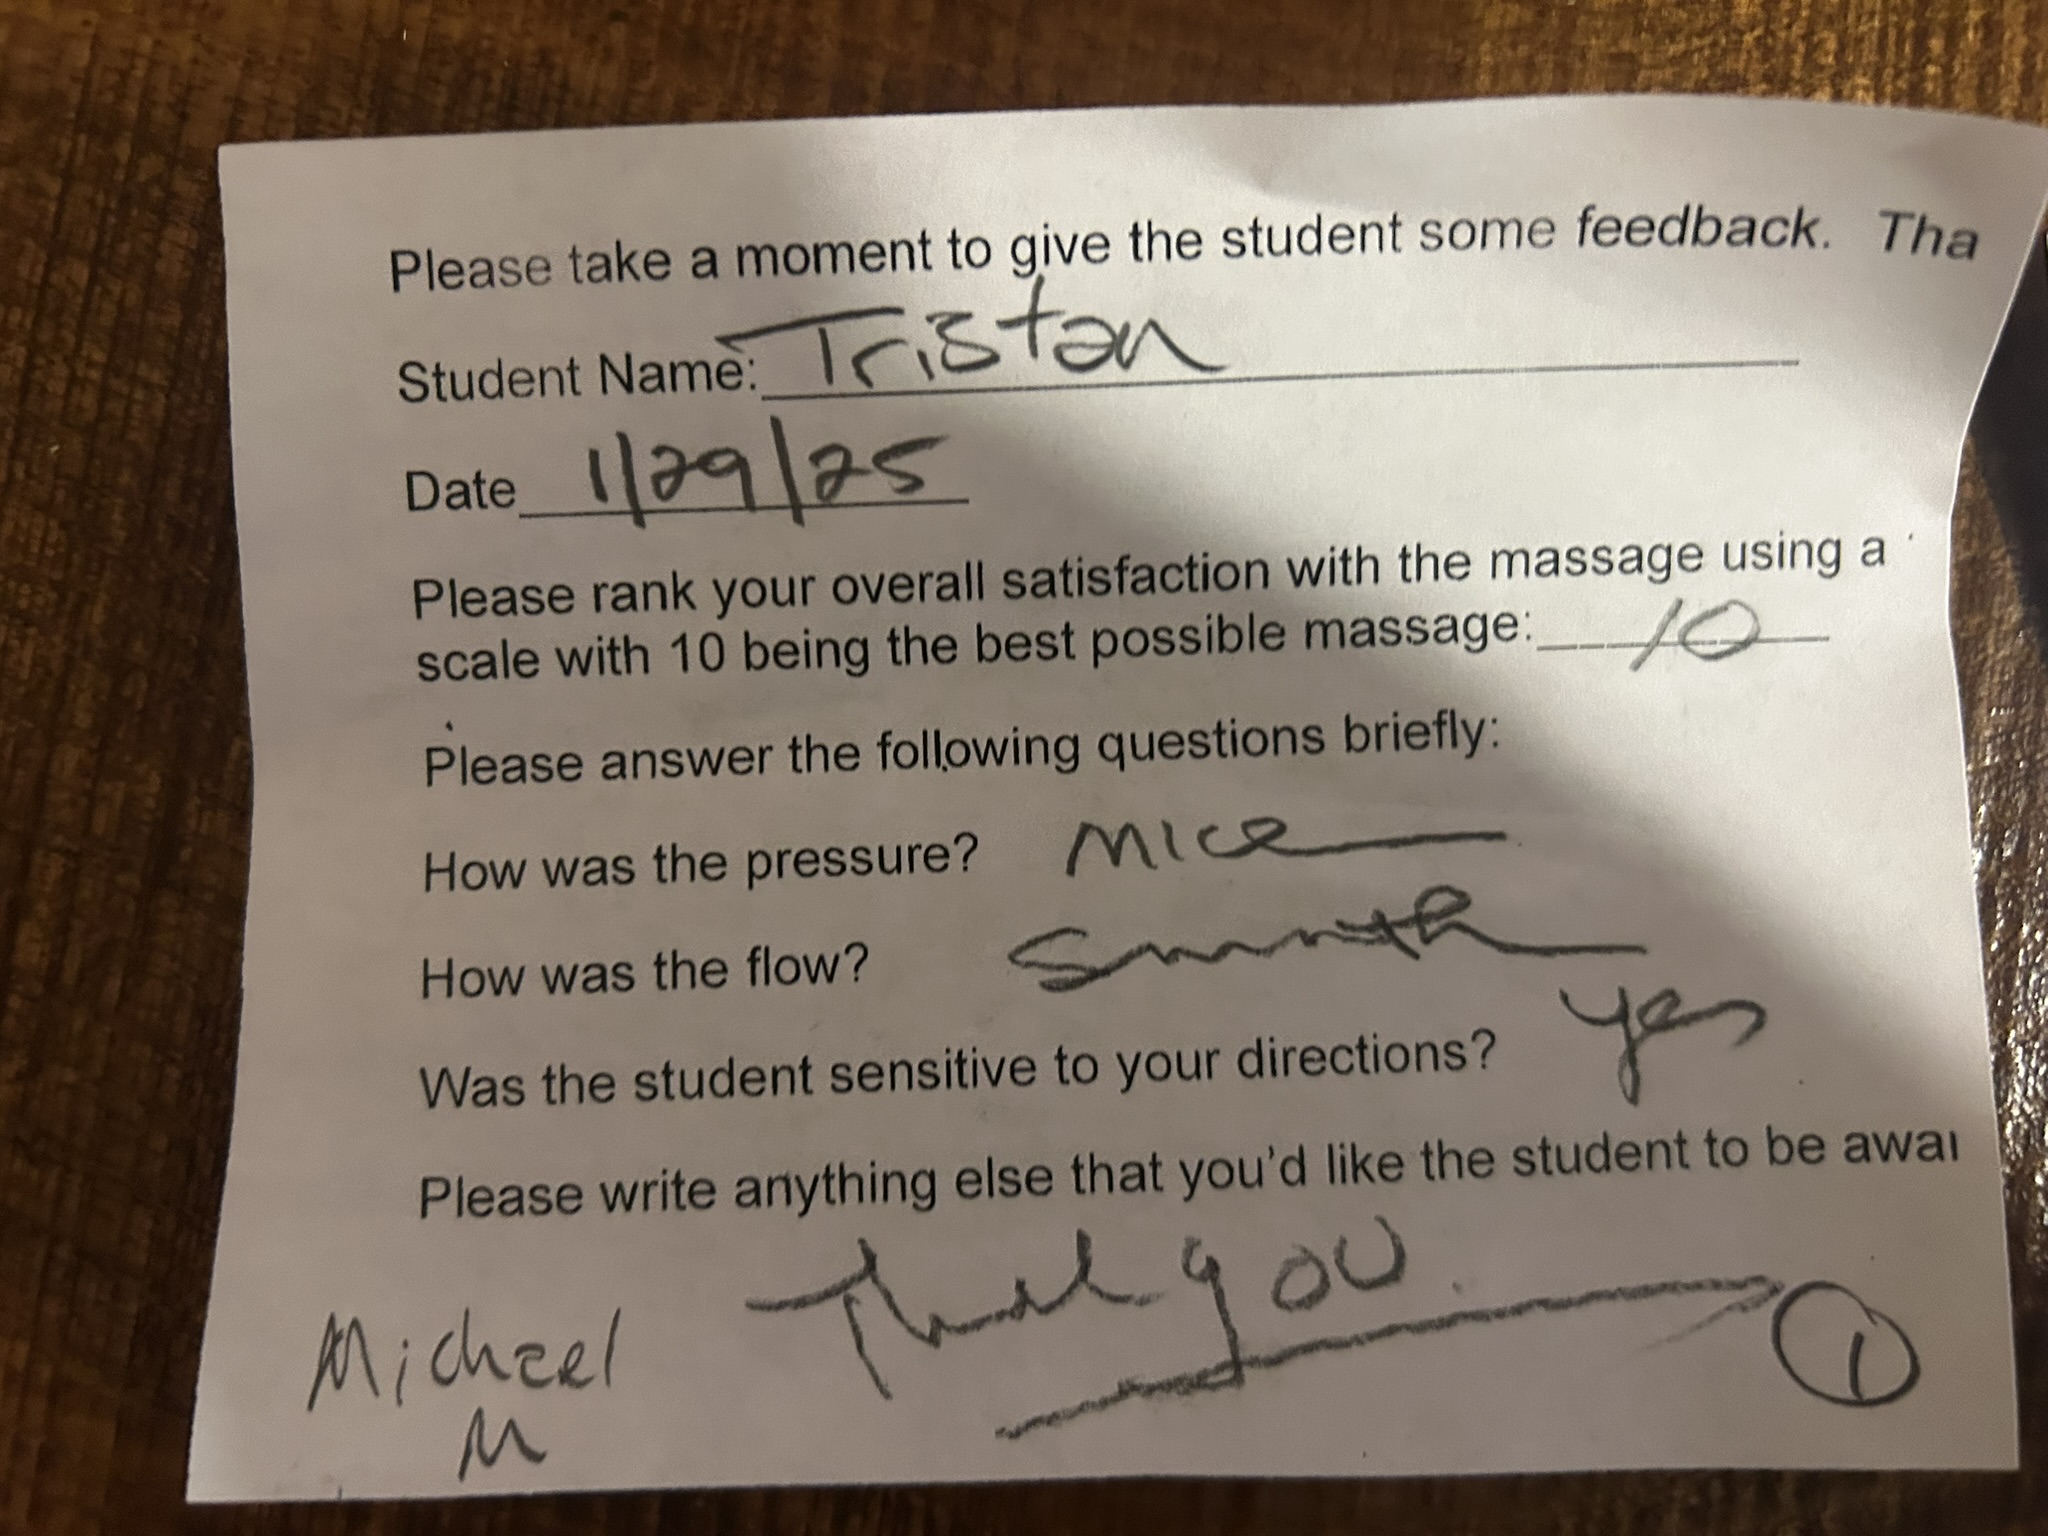 Please take a moment to give the student some feedback. Tha
Student Name: Tristan
Date 1/29/25
Please rank your overall satisfaction with the massage using a
scale with 10 being the best possible massage: 10
Please answer the following questions briefly:
How was the pressure? Nice
How was the flow? Smooth
Was the student sensitive to your directions? yes
Please write anything else that you'd like the student to be awar
Thank you
Michael
M
1